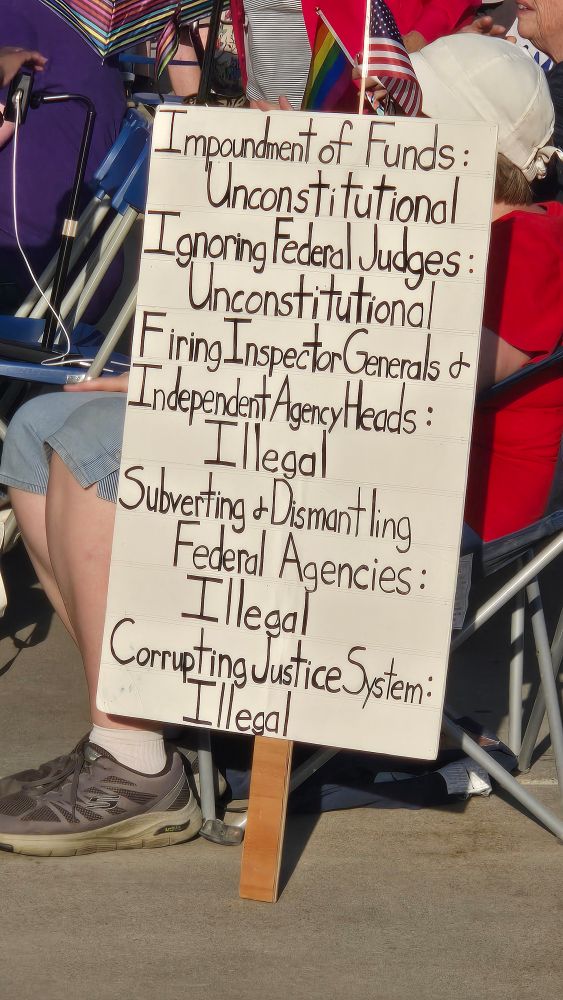 Impoundment of Funds:
Unconstitutional
Ignoring Federal Judges:
Unconstitutional
Firing Inspector Generals &
Independent Agency Heads:
Illegal
Subverting & Dismantling
Federal Agencies:
Illegal
Corrupting Justice System:
Illegal